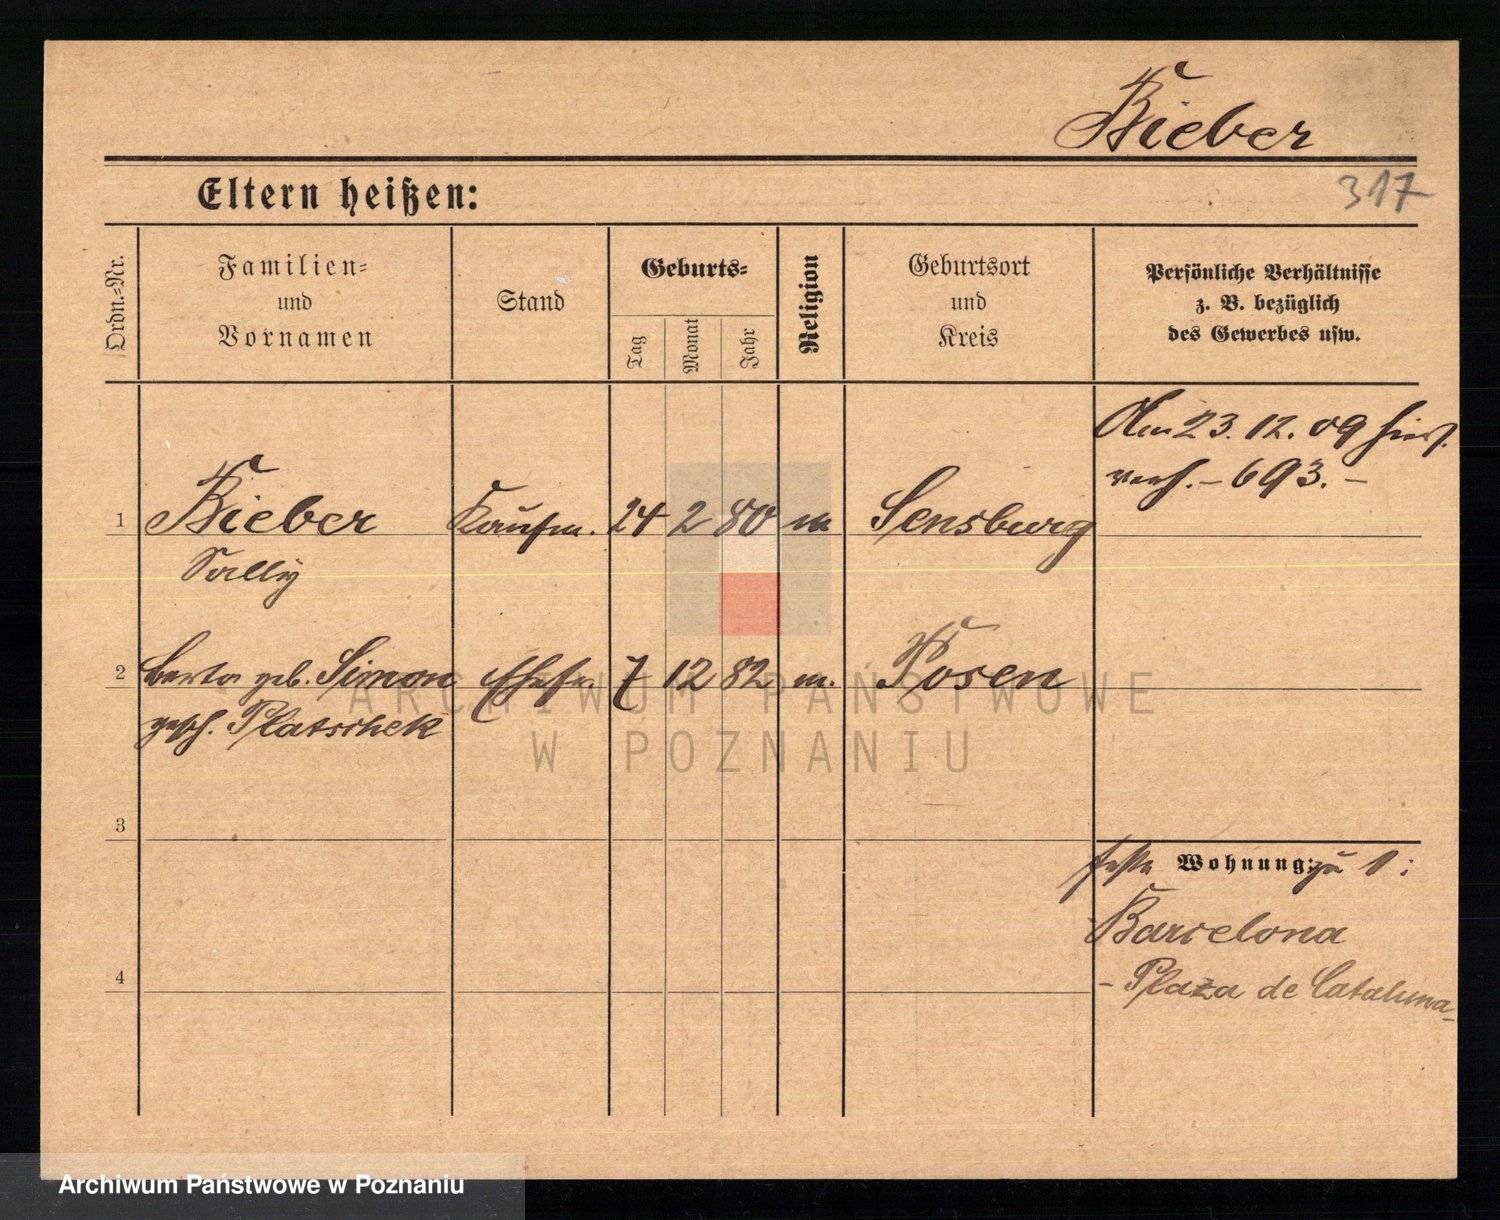 Bieber
317
Eltern heißen:
Ordn.-Nr.
Familien-
und
Vornamen
Stand
Geburts-
Tag
Monat
Jahr
Religion
Geburtsort
und
Kreis
Persönliche Verhältnisse
z. B. bezüglich
des Gewerbes usw.
Am 23. 12. 09 hies.
verh. - 693. -
1 Bieber Kaufm. 24 2 80 m Sensburg
Sally
2 Berta geb. Simon Ehefr. 7 12 82 m. Posen
gesch. Platschek
3
feste Wohnung: zu 1:
Barcelona
- Plaza de Cataluna -
4
ARCHIWUM PAŃSTWOWE
W POZNANIU
Archiwum Państwowe w Poznaniu